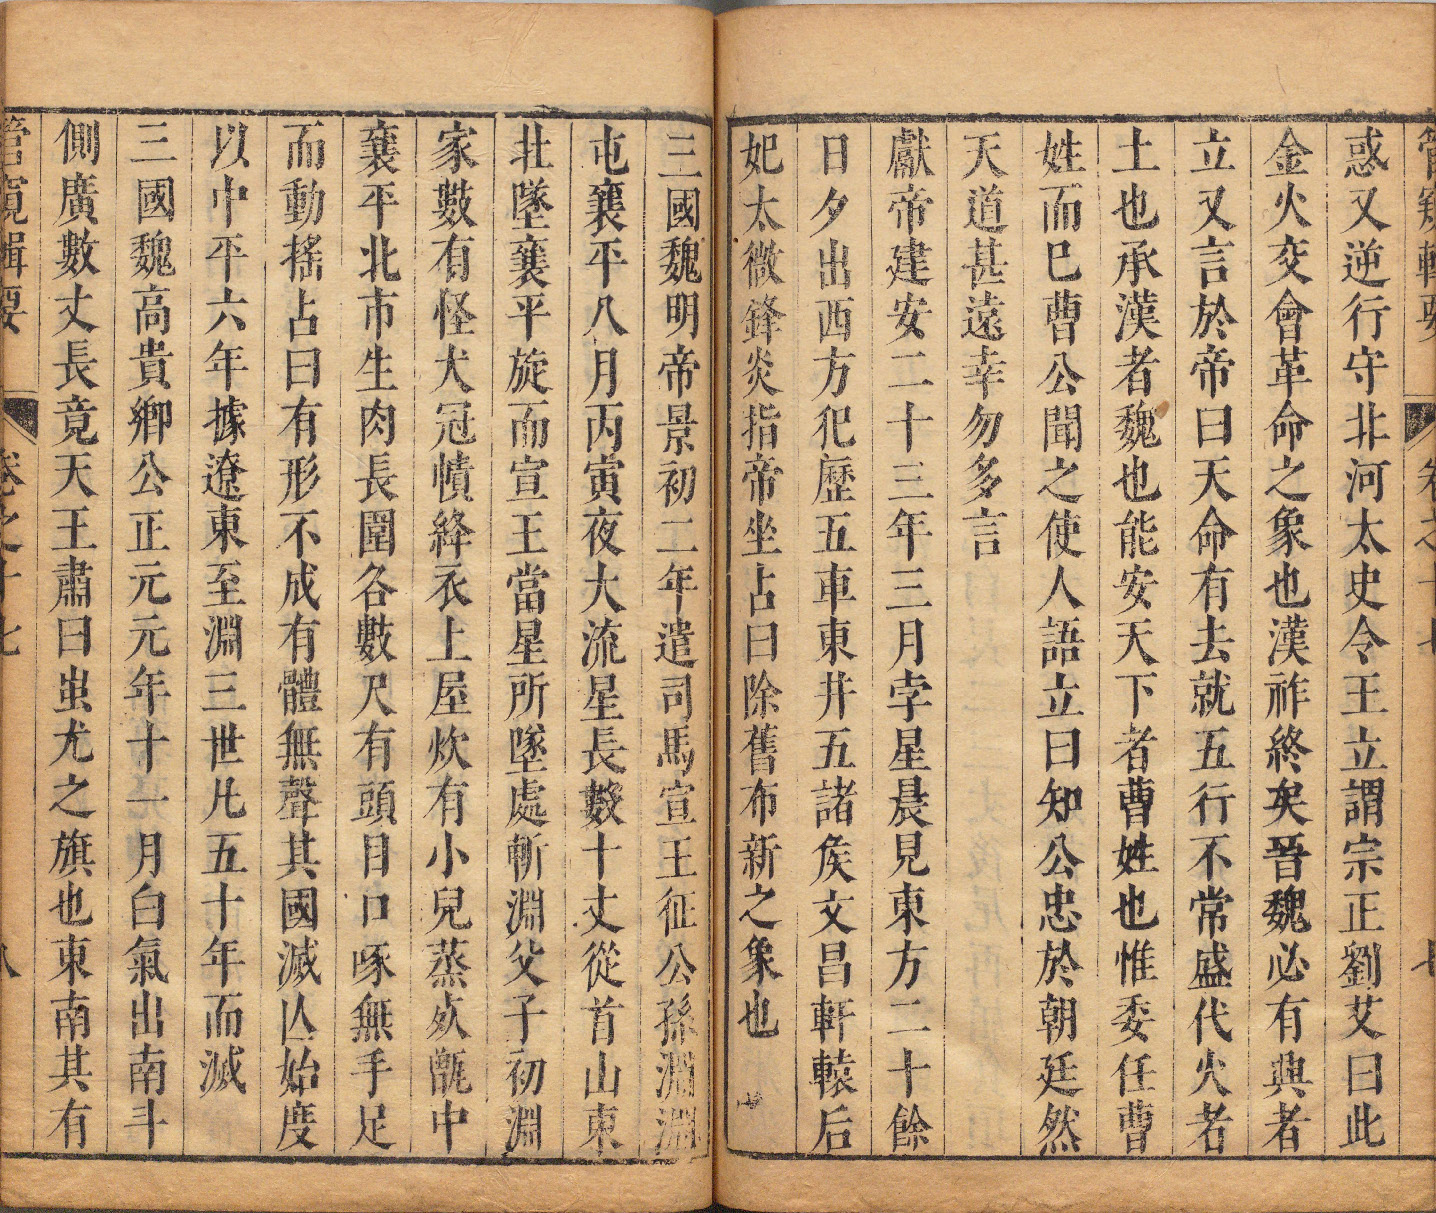 管窺輯要 卷之十七 七
惑又逆行守北河太史令王立謂宗正劉艾曰此
金火交會革命之象也漢祚終矣晉魏必有興者
立又言於帝曰天命有去就五行不常盛代火者
土也承漢者魏也能安天下者曹姓也惟委任曹
姓而巳曹公聞之使人語立曰知公忠於朝廷然
天道甚遠幸勿多言
獻帝建安二十三年三月孛星晨見東方二十餘
日夕出西方犯歷五車東井五諸矦文昌軒轅后
妃太微鋒炎指帝坐占曰除舊布新之象也
三國魏明帝景初二年遣司馬宣王征公孫淵淵
屯襄平八月丙寅夜大流星長數十丈從首山東
北墜襄平旋而宣王當星所墜處斬淵父子初淵
家數有怪犬冠幘絳衣上屋炊有小兒蒸死甑中
襄平北市生肉長圍各數尺有頭目口啄無手足
而動搖占曰有形不成有體無聲其國滅亾始度
以中平六年據遼東至淵三世凡五十年而滅
三國魏高貴鄉公正元元年十一月白氣出南斗
側廣數丈長竟天王肅曰蚩尤之旗也東南其有
管窺輯要 卷之十七 八